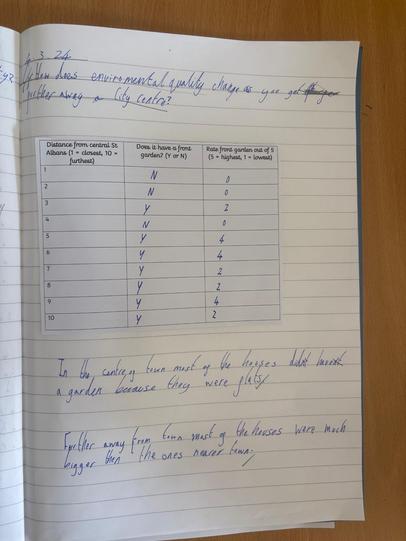 3 24
How does enviromental quality change as you get
further away a City centre?
Distance from central St Albans (1 = closest, 10 = furthest) Does it have a front garden? (Y or N) Rate front garden out of 5 (5 = highest, 1 = lowest)
1 N 0
2 N 0
3 Y 2
4 N 0
5 Y 4
6 Y 4
7 Y 2
8 Y 2
9 Y 4
10 Y 2
In the centre of town most of the houses didnt
a garden because they were flats
Further away from town most of the houses were much
bigger then the ones nearer town.